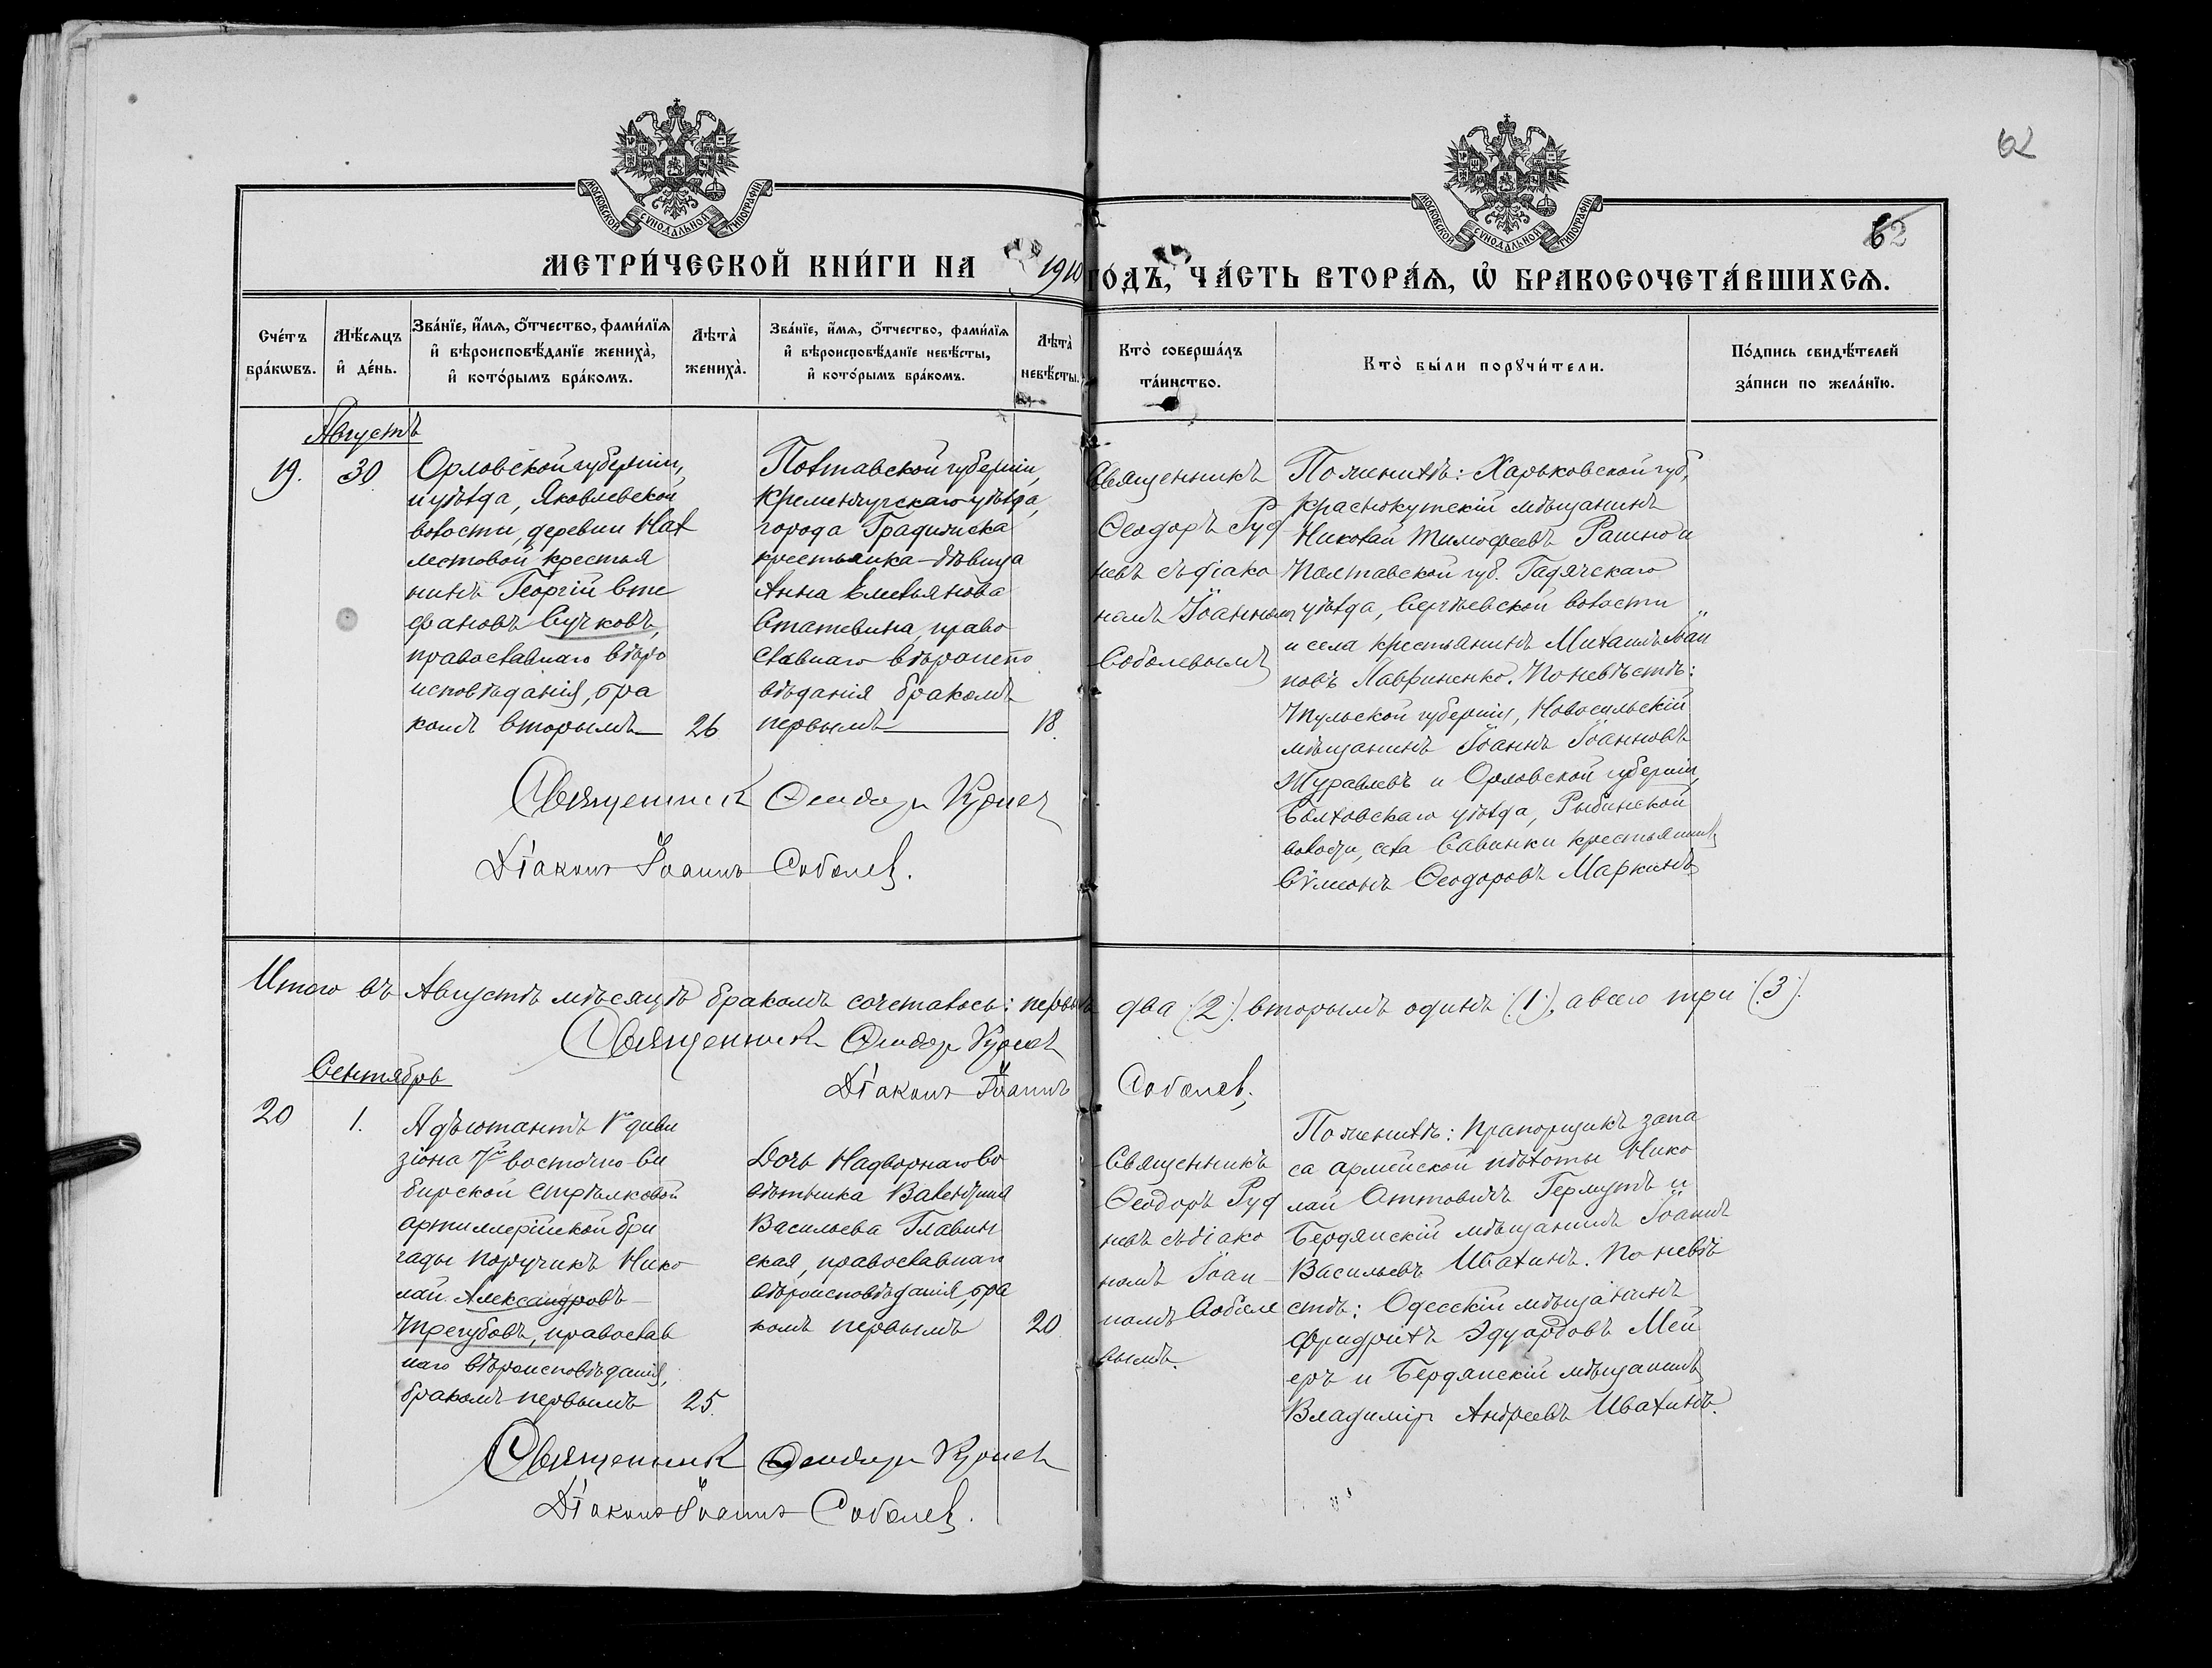 62
МОСКОВСКОЙ СѴНОДАЛЬНОЙ ТИПОГРАФІИ
МОСКОВСКОЙ СѴНОДАЛЬНОЙ ТИПОГРАФІИ
62
МЕТРИ́ЧЕСКОЙ КНИ́ГИ НА 1910 ГО́ДЪ, ЧА́СТЬ ВТОРА́Ѧ, Ѡ҆ БРАКОСОЧЕТА́ВШИХСѦ.
Сче́тъ
бра́кѡвъ.
Мѣ́сѧцъ
и҆ де́нь.
Зва́нїе, и҆́мѧ, ѻ҆́тчество, фами́лїѧ
и҆ вѣроисповѣ́данїе жениха̀,
и҆ кото́рымъ бра́комъ.
Лѣта̀
жениха̀.
Зва́нїе, и҆́мѧ, ѻ҆́тчество, фами́лїѧ
и҆ вѣроисповѣ́данїе невѣ́сты,
и҆ кото́рымъ бра́комъ.
Лѣта̀
невѣ́сты.
Кто̀ соверша́лъ
та́инство.
Кто̀ бы́ли порꙋчи́тели.
По́дпись свидѣ́телей
за́писи по жела́нїю.
Августъ
19.
30
Орловской губерніи,
и уѣзда, Яковлевской
волости, деревни Нах
лестовой крестья
нинъ Георгій Сте
фановъ Сучковъ,
православнаго вѣро
исповѣданія, бра
комъ вторымъ
26
Полтавской губерніи,
Кременчугскаго уѣзда,
города Градижска
крестьянка-дѣвица
Анна Емельянова
Статевина, право
славнаго вѣроиспо
вѣданія бракомъ
первымъ
18.
Священникъ
Ѳеодоръ Руд
невъ съ діако
номъ Іоанномъ
Соболевымъ
По женихѣ: Харьковской губ,
Краснокутскій мѣщанинъ
Николай Тимофеевъ и
Полтавской губ. Гадячскаго
уѣзда, Сергѣевской волости
и села крестьянинъ Михаилъ Іоан
новъ Лавриненко. По невѣстѣ:
Тульской губерніи, Новосильскій
мѣщанинъ Іоаннъ Іоанновъ
Журавлевъ и Орловской губерніи,
Болховскаго уѣзда, Рыбинской
волости, села Савинки крестьянинъ
Сѵмеонъ Ѳеодоровъ Маркинъ
Священникъ Ѳеодоръ Руднев
Діаконъ Іоаннъ Соболев.
Итого въ Августѣ мѣсяцѣ бракомъ сочеталось: первымъ два (2). вторымъ одинъ (1), а всего три (3).
Священникъ Ѳеодоръ Руднев
Діаконъ Іоаннъ Соболев.
Сентябрь
20
1.
Адъютантъ 1го диви
зіона 7й восточно Си
бирской стрѣлковой
артиллерійской бри
гады поручикъ Нико
лай Александровъ
Трегубовъ, православ
наго вѣроисповѣданія,
бракомъ первымъ
25.
Дочь Надворнаго Со
вѣтника Валентина
Васильева Главин
ская, православнаго
вѣроисповѣданія, бра
комъ первымъ
20
Священникъ
Ѳеодоръ Руд
невъ съ діако
номъ Іоан
номъ Соболе
вымъ.
По женихѣ: Прапорщикъ запа
са армейской пѣхоты Нико
лай Оттовичъ Гермутъ и
Бердянскій мѣщанинъ Іоаннъ
Васильевъ Ивахинъ. По невѣ
стѣ: Одесскій мѣщанинъ
Фридрихъ Эдуардовъ Мей
еръ и Бердянскій мѣщанинъ
Владиміръ Андреевъ Ивахинъ.
Священникъ Ѳеодоръ Руднев
Діаконъ Іоаннъ Соболев.